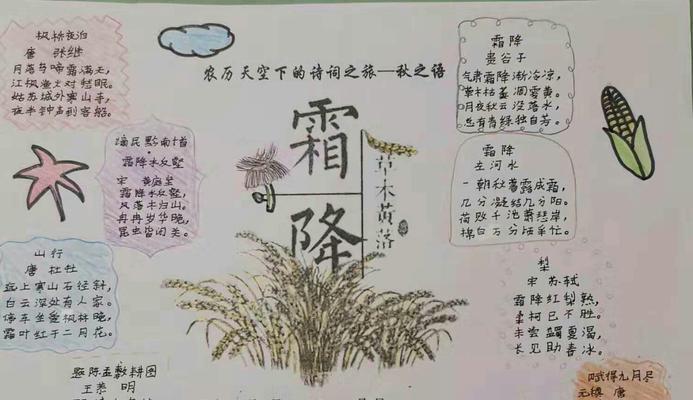 农历天空下的诗词之旅—秋之语
霜降
草木黄落
枫桥夜泊
唐 张继
月落乌啼霜满天，
江枫渔火对愁眠。
姑苏城外寒山寺，
夜半钟声到客船。
谪居黔南十首
霜降水反壑
宋 黄庭坚
霜降水反壑，
风落木归山。
冉冉岁华晚，
昆虫皆闭关。
山行
唐 杜牧
远上寒山石径斜，
白云深处有人家。
停车坐爱枫林晚，
霜叶红于二月花。
题陈孟敷耕图
王恭 明
霜降
贵谷子
气肃霜降渐冷凉，
草木枯萎凋零黄。
月夜秋云没落水，
总有青绿独自芳。
霜降
左河水
一朝秋暮露成霜，
几分凝结几分阳。
荷败千池萧瑟岸，
棉白万分
梨
宋 苏轼
霜降红梨熟，
柔柯已不胜。
未尝蠲夏渴，
长见助春冰。
赋得九月尽
元稹 唐